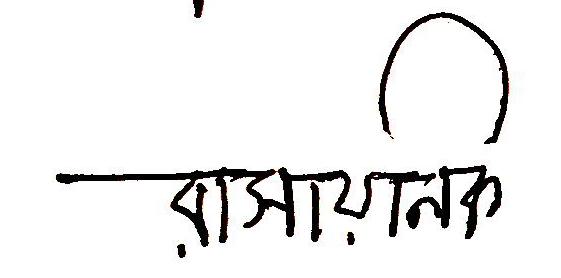 রাসায়নিক